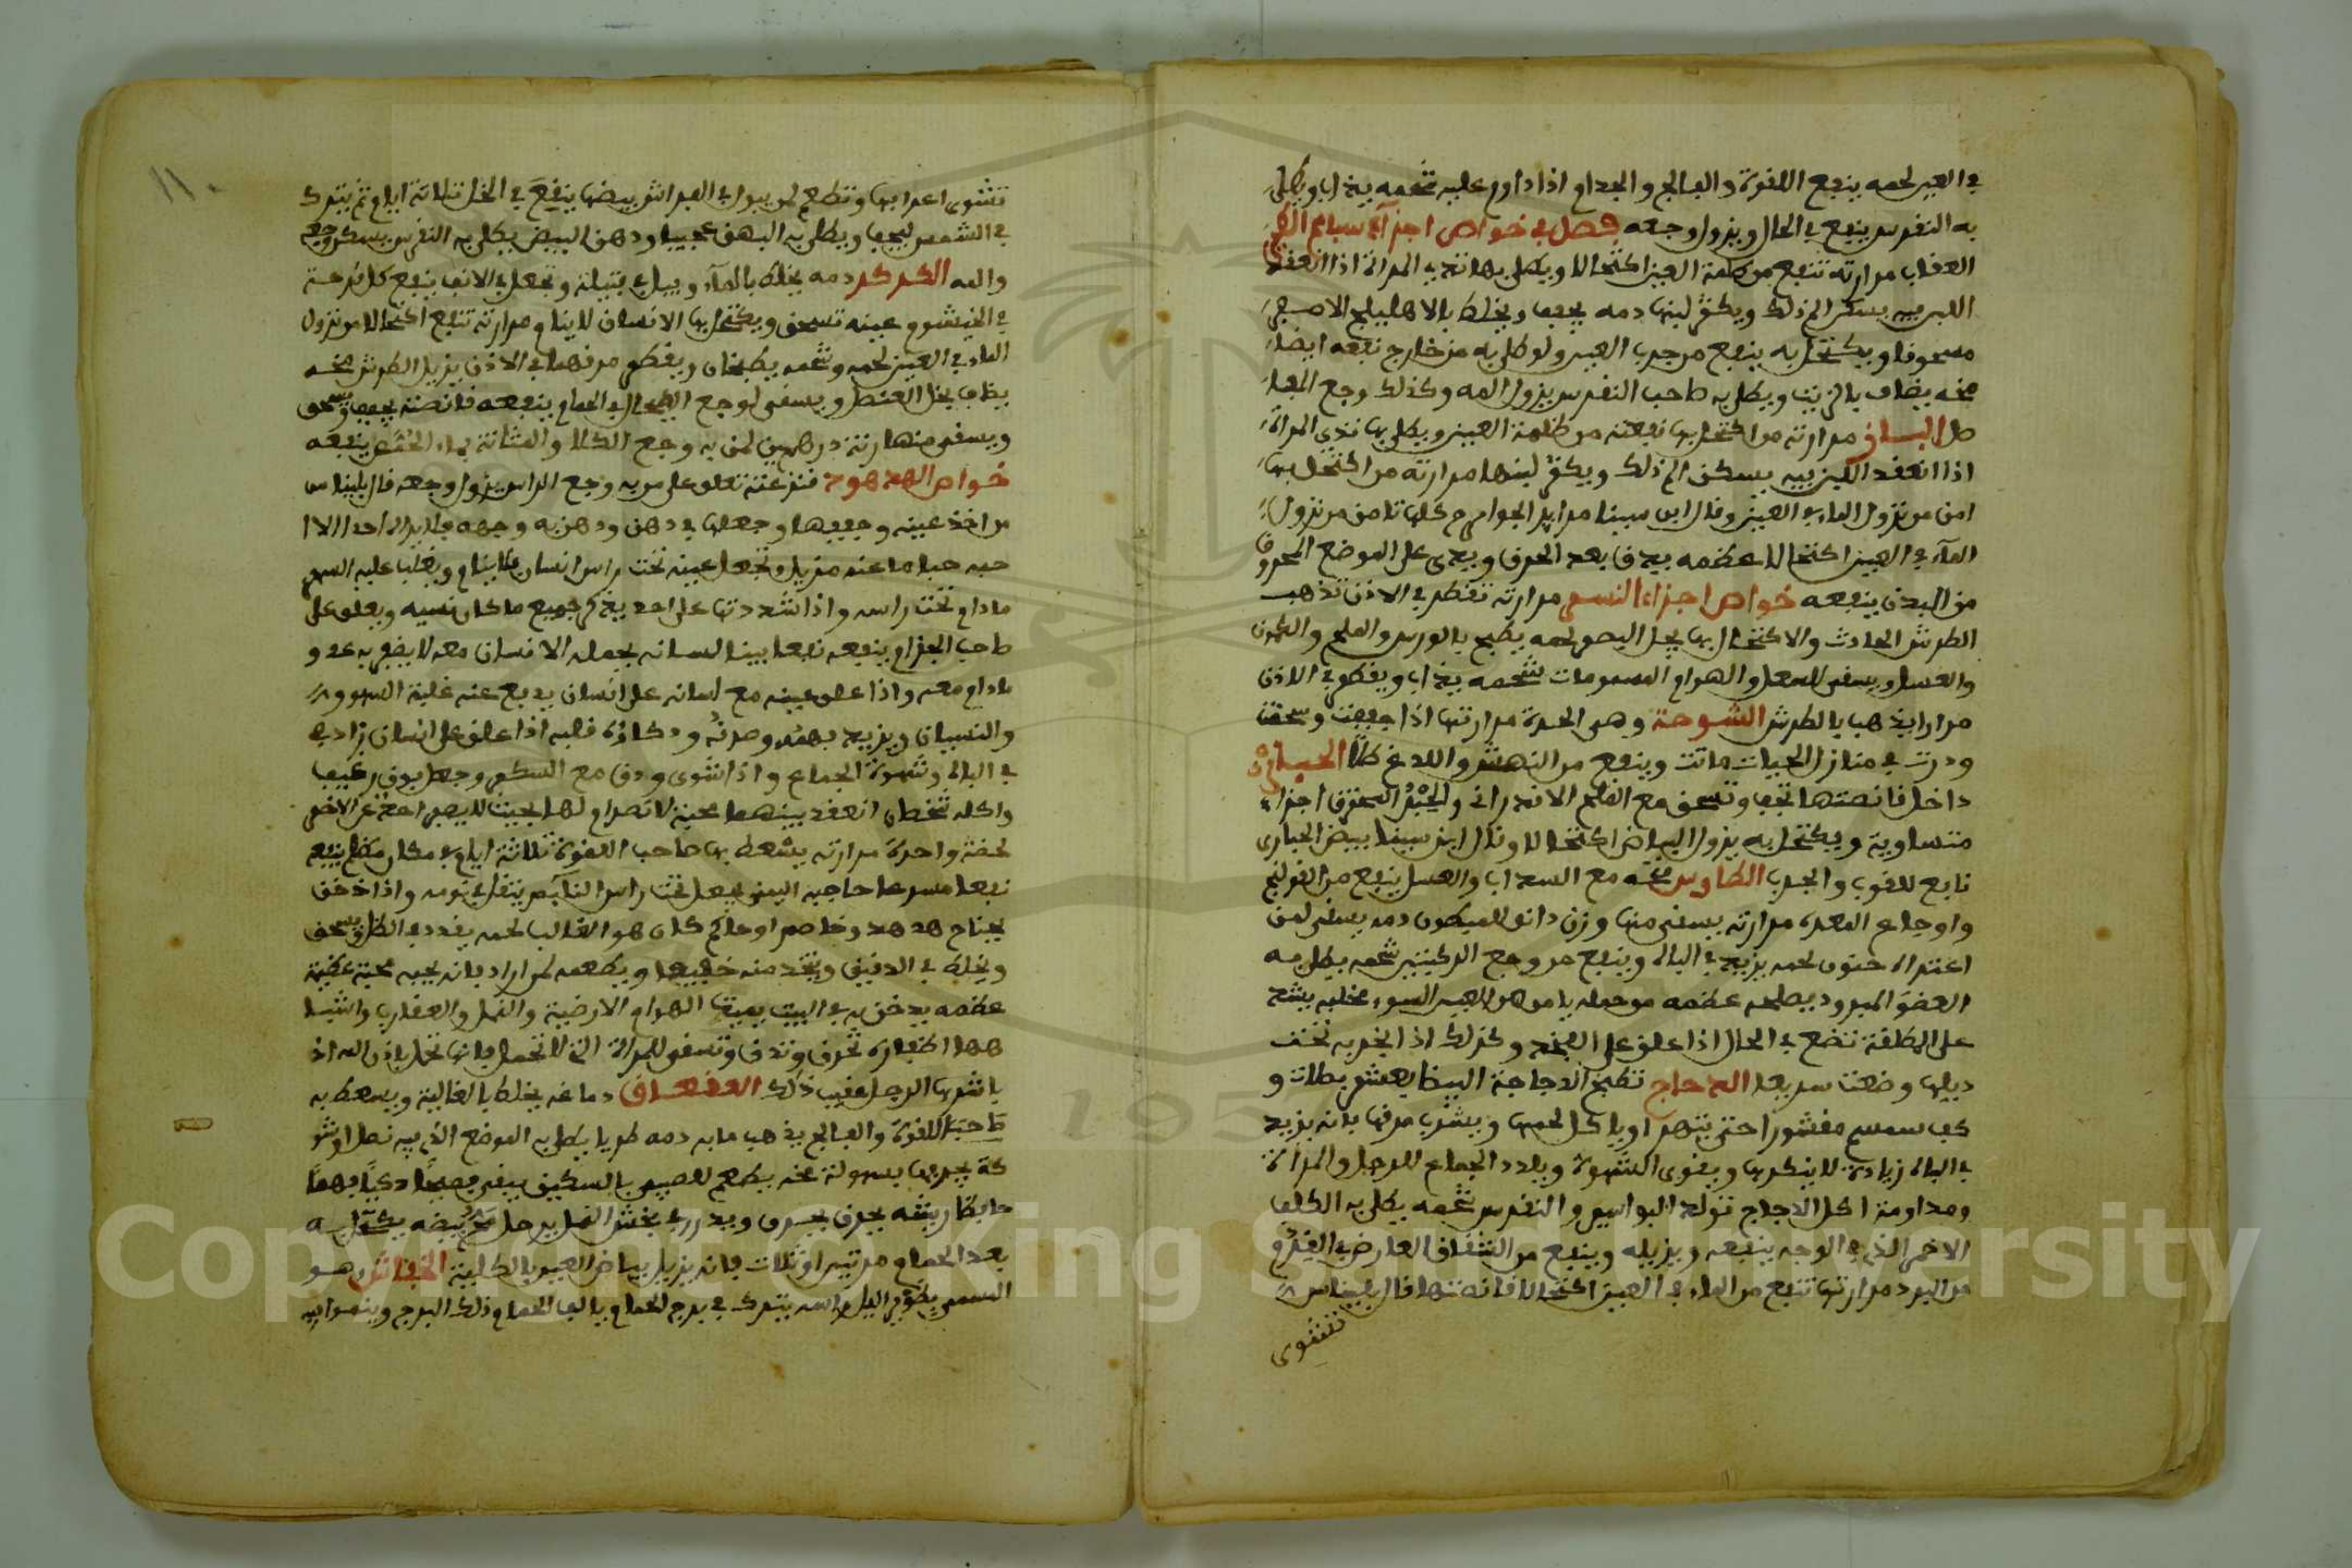 في العين لحمه ينفع اللقوة والفالج والجذام اذا داوم عليه شحمه يذاب ويطلى
به النقرس ينفع في الحال ويزول وجعه فصل في خواص اجزآء سباع الطير
العقاب مرارته تنفع من ظلمة العين اكتحالا ويطلى بها ثدي المراة اذا انعقد
اللبن فيه يسكن الم ذلك ويكثر لبنها دمه يجفف ويخلط بالاهليلج الاصفر
مسحوقا ويكتحل به ينفع من جرب العين ولو طلي به من خارج نفعه ايضا
مخه يضاف بالزيت ويطلى به صاحب النقرس يزول المه وكذلك وجع المفا
صل البازي مرارته من اكتحل بها نفعته من ظلمة العين ويطلى بها ثدي المراة
اذا انعقد اللبن فيه يسكن الم ذلك ويكثر لبنها مرارته من اكتحل بها
امن من نزول الماء في العين وقال ابن سينا مراير الجوارح كلها تامن من نزول
المآء في العين اكتحالا عظمه يدق بعد الحرق ويذر على الموضع المحروق
من البدن ينفعه خواص اجزاء النسر مرارته تقطر في الاذن تذهب
الطرش الحادث والاكتحال بها يحد البصر لحمه يطبخ بالورس والملح والكمون
والعسل ويسقى للسعل والهوام المسمومات شحمه يذاب ويقطر في الاذن
مرارا يذهب بالطرش الشوحة وهي الحدية مرارتها اذا جففت وسحقت
وذرت في منازل الحيات ماتت وينفع من النهش واللدغ طلا الحبارى
داخل قانصتها تجفف وتسحق مع الملح الاندراني والخبز المحترق اجزاء
متساوية ويكتحل به يزول البياض اكتحالا وقال ابن سينا بيض الحبارى
نافع للقوب والجرب الطاوس مخه مع السذاب والعسل ينفع من القولنج
واوجاع المعدة مرارته يسقى منها وزن دانق للمبطون دمه يسقى لمن
اعتراه جنون لحمه يزيد في الباه وينفع من وجع الركبتين شحمه يطلى به
العضو المبرود يصلحه عظمه من حمله يامن من العين السوء مخلبه يشد
على المطلقة تضع في الحال اذا علق على الفخذ وكذلك اذا بخر به تحت
ذيلها وضعت سريعا الدجاج تطبخ الدجاجة البيضا بعشر بصلات و
كف سمسم مقشورا حتى يتهرا وياكل لحمها ويشرب مرقها فانه يزيد
في الباه زيادة لا ينكرها ويقوى الشهوة ويلذذ الجماع للرجل والمراة
ومداومة اكل الدجاج تولد البواسير والنقرس شحمه يطلى به الكلف
الاحمر الذي في الوجه ينفعه ويزيله وينفع من الشقاق العارض في القدم
من البرد مرارتها تنفع من الماء في العين اكتحالا قانصتها قال بليناس
تشوى
تشوى اعرافها وتطعم لمن يبول في الفراش بيضها ينقع في الخل ثلاثة ايام ثم يترك
في الشمس ليجف ويطلى به البهق عجيبا ودهن البيض يطلى به النقرس يسكن وجعه
والمه الكركر دمه يخلط بالمآء ويبل به فتيلة وتجعل في الانف ينفع كل قرحة
في الخيشوم عينه تسحق ويكتحل بها الانسان لا ينام ومرارته تنفع اكتحالا من نزول
الماء في العين لحمه وشحمه يطبخان ويقطر من فهما في الاذن يزيل الطرش مخه
يضاف بخل العنصل ويسقى لوجع الطحال في الحمام ينفعه قانصته يجفف ويسحق
ويسقى منها زنة درهمين لمن به وجع الكلا والمثانة بماء الحمص ينفعه
خواص الهدهد قنزعته تعلق على من به وجع الراس يزول وجعه قال بليناس
من اخذ عينه وجففها وجعلها في دهن ودهن به وجهه فلا يراه احد الا ا
حبه حبا ما عنه مزيل وتجعل عينه تحت راس انسان فلا ينام ويغلب عليه السهر
ما دام تحت راسه واذا شددتها على احد يذكر جميع ما كان نسيه ويعلق على
صاحب الجذام ينفعه نفعا بينا لسانه يحمله الانسان معه لا يظفر به عدو
مادام معه واذا علق عينه مع لسانه على انسان يدفع عنه غلبة السهو
والنسيان ويزيد بفهمه وحدته وذكاؤه قلبه اذا علق على انسان زاد في
في الباه وشهوة الجماع واذا شوى ودق مع السكر وجعل فوق رغيف
واكله شخصان انعقد بينهما محبة لا تصرام لها بحيث لا يصبر احدهما عن الاخر
لحضة واحدة مرارته يسعط بها صاحب اللقوة ثلاثة ايام في مكان مظلم ينفع
نفعا مسرعا حاجبه اليمنى يجعل تحت راس النآيم يثقل في نومه واذا دخن
بجناح هدهد وخاصم او حاكم كان هو الغالب لحمه يقدد في الظل ويسحق
ويخلط في الدقيق ويتخذ منه خبيصا ويطعمه لمن اراد فانه يحبه محبة عظيمة
عظمه يدخن به في البيت يميت الهوام الارضية والنمل والعقارب واشبا
هها اظفاره تحرق وتدق وتسقى للمراة التي لا تحمل فانها تحمل باذن الله اذ
باشرها الرجل عقيب ذلك العقعق دماغه يخلط بالغالية ويسعط به
صاحب اللقوة والفالج يذهب ما به دمه طريا يطلى به الموضع الذي فيه نصل او شو
كة يخرجها بسهولة مخه يطعم للصبي بالسكين يبقى فصيحًا ذكيًا فهمًا
حافظا ريشه يحرق ويذر في مخش النمل يرحل بيضه يكتحل به
بعد الحمام مرتين او ثلاث فانه يزيل بياض العين بالكلية الخفاش وهو
المسمى بطوير الليل راسه يترك في برج الحمام يالف الحمام ذلك البرج وينموا فيه